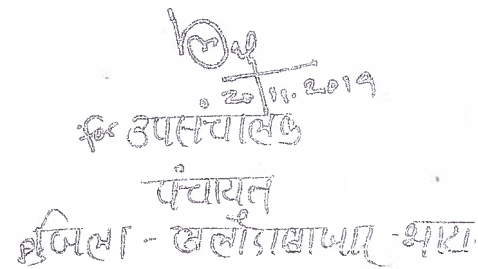 20.11.2019
उपसंचालक
पंचायत
जिला - बलौदाबाजार - भाटा